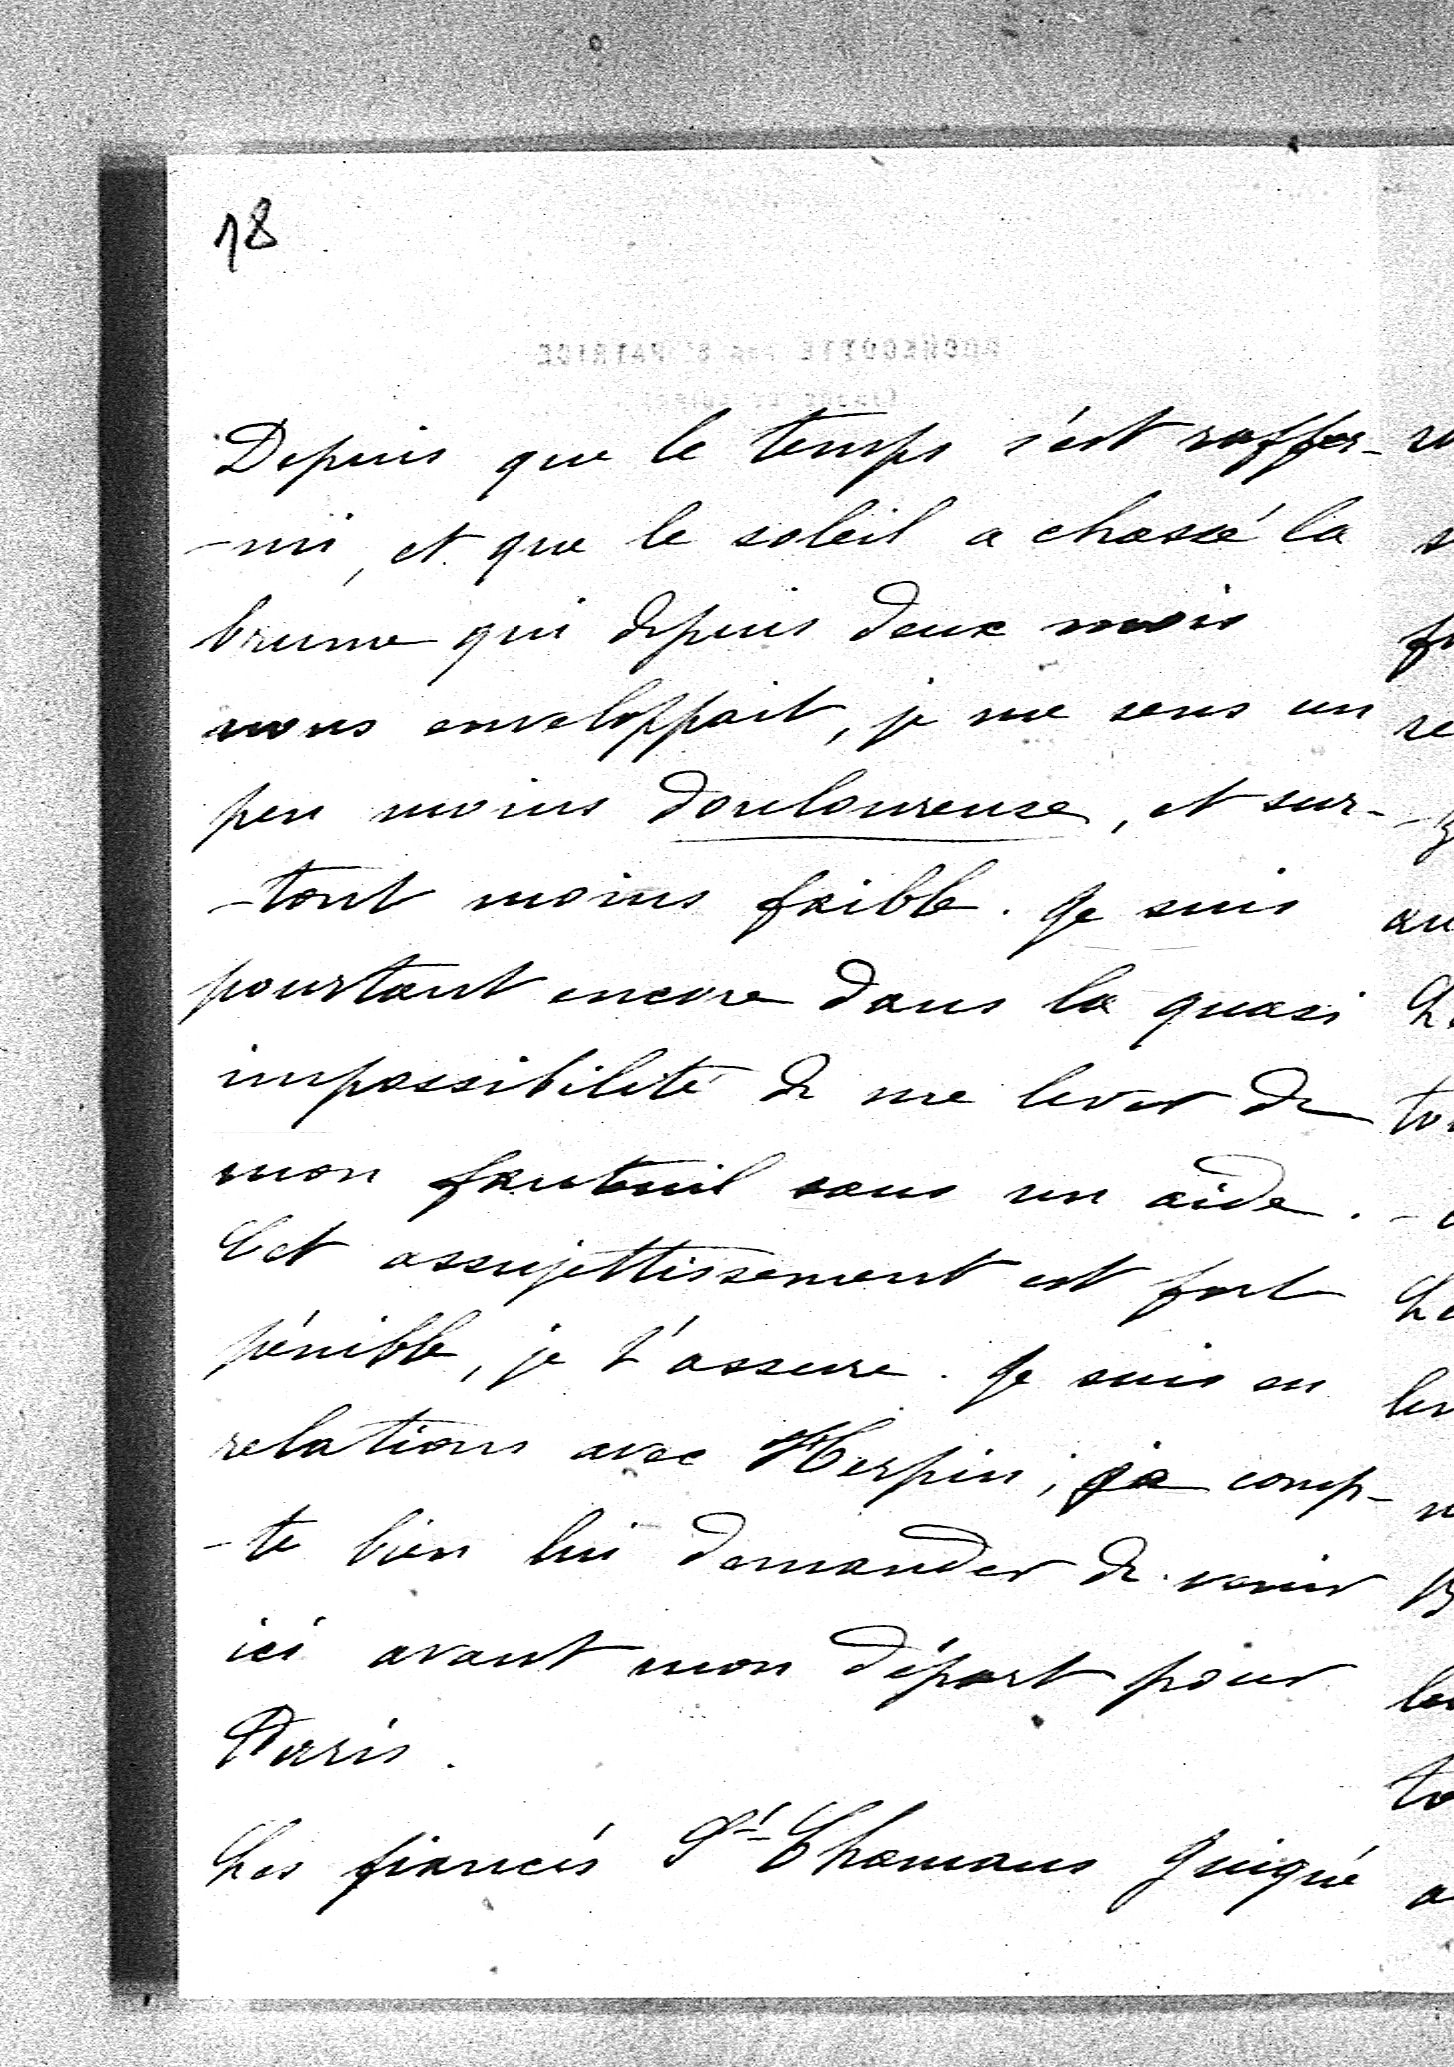 18
Depuis que le temps s'est raffer-
-mi, et que le soleil a chassé la
brume qui depuis deux mois
nous enveloppait, je me sens un
peu moins douloureuse, et sur-
-tout moins faible. Je suis
pourtant encore dans la quasi
impossibilité de me lever de
mon fauteuil sans un aide.
Cet assujettissement est fort
pénible, je t'assure. Je suis en
relations avec Herpin; je comp-
-te bien lui demander de venir
ici avant mon départ pour
Paris.
Les fiancés St Chamans Guigné